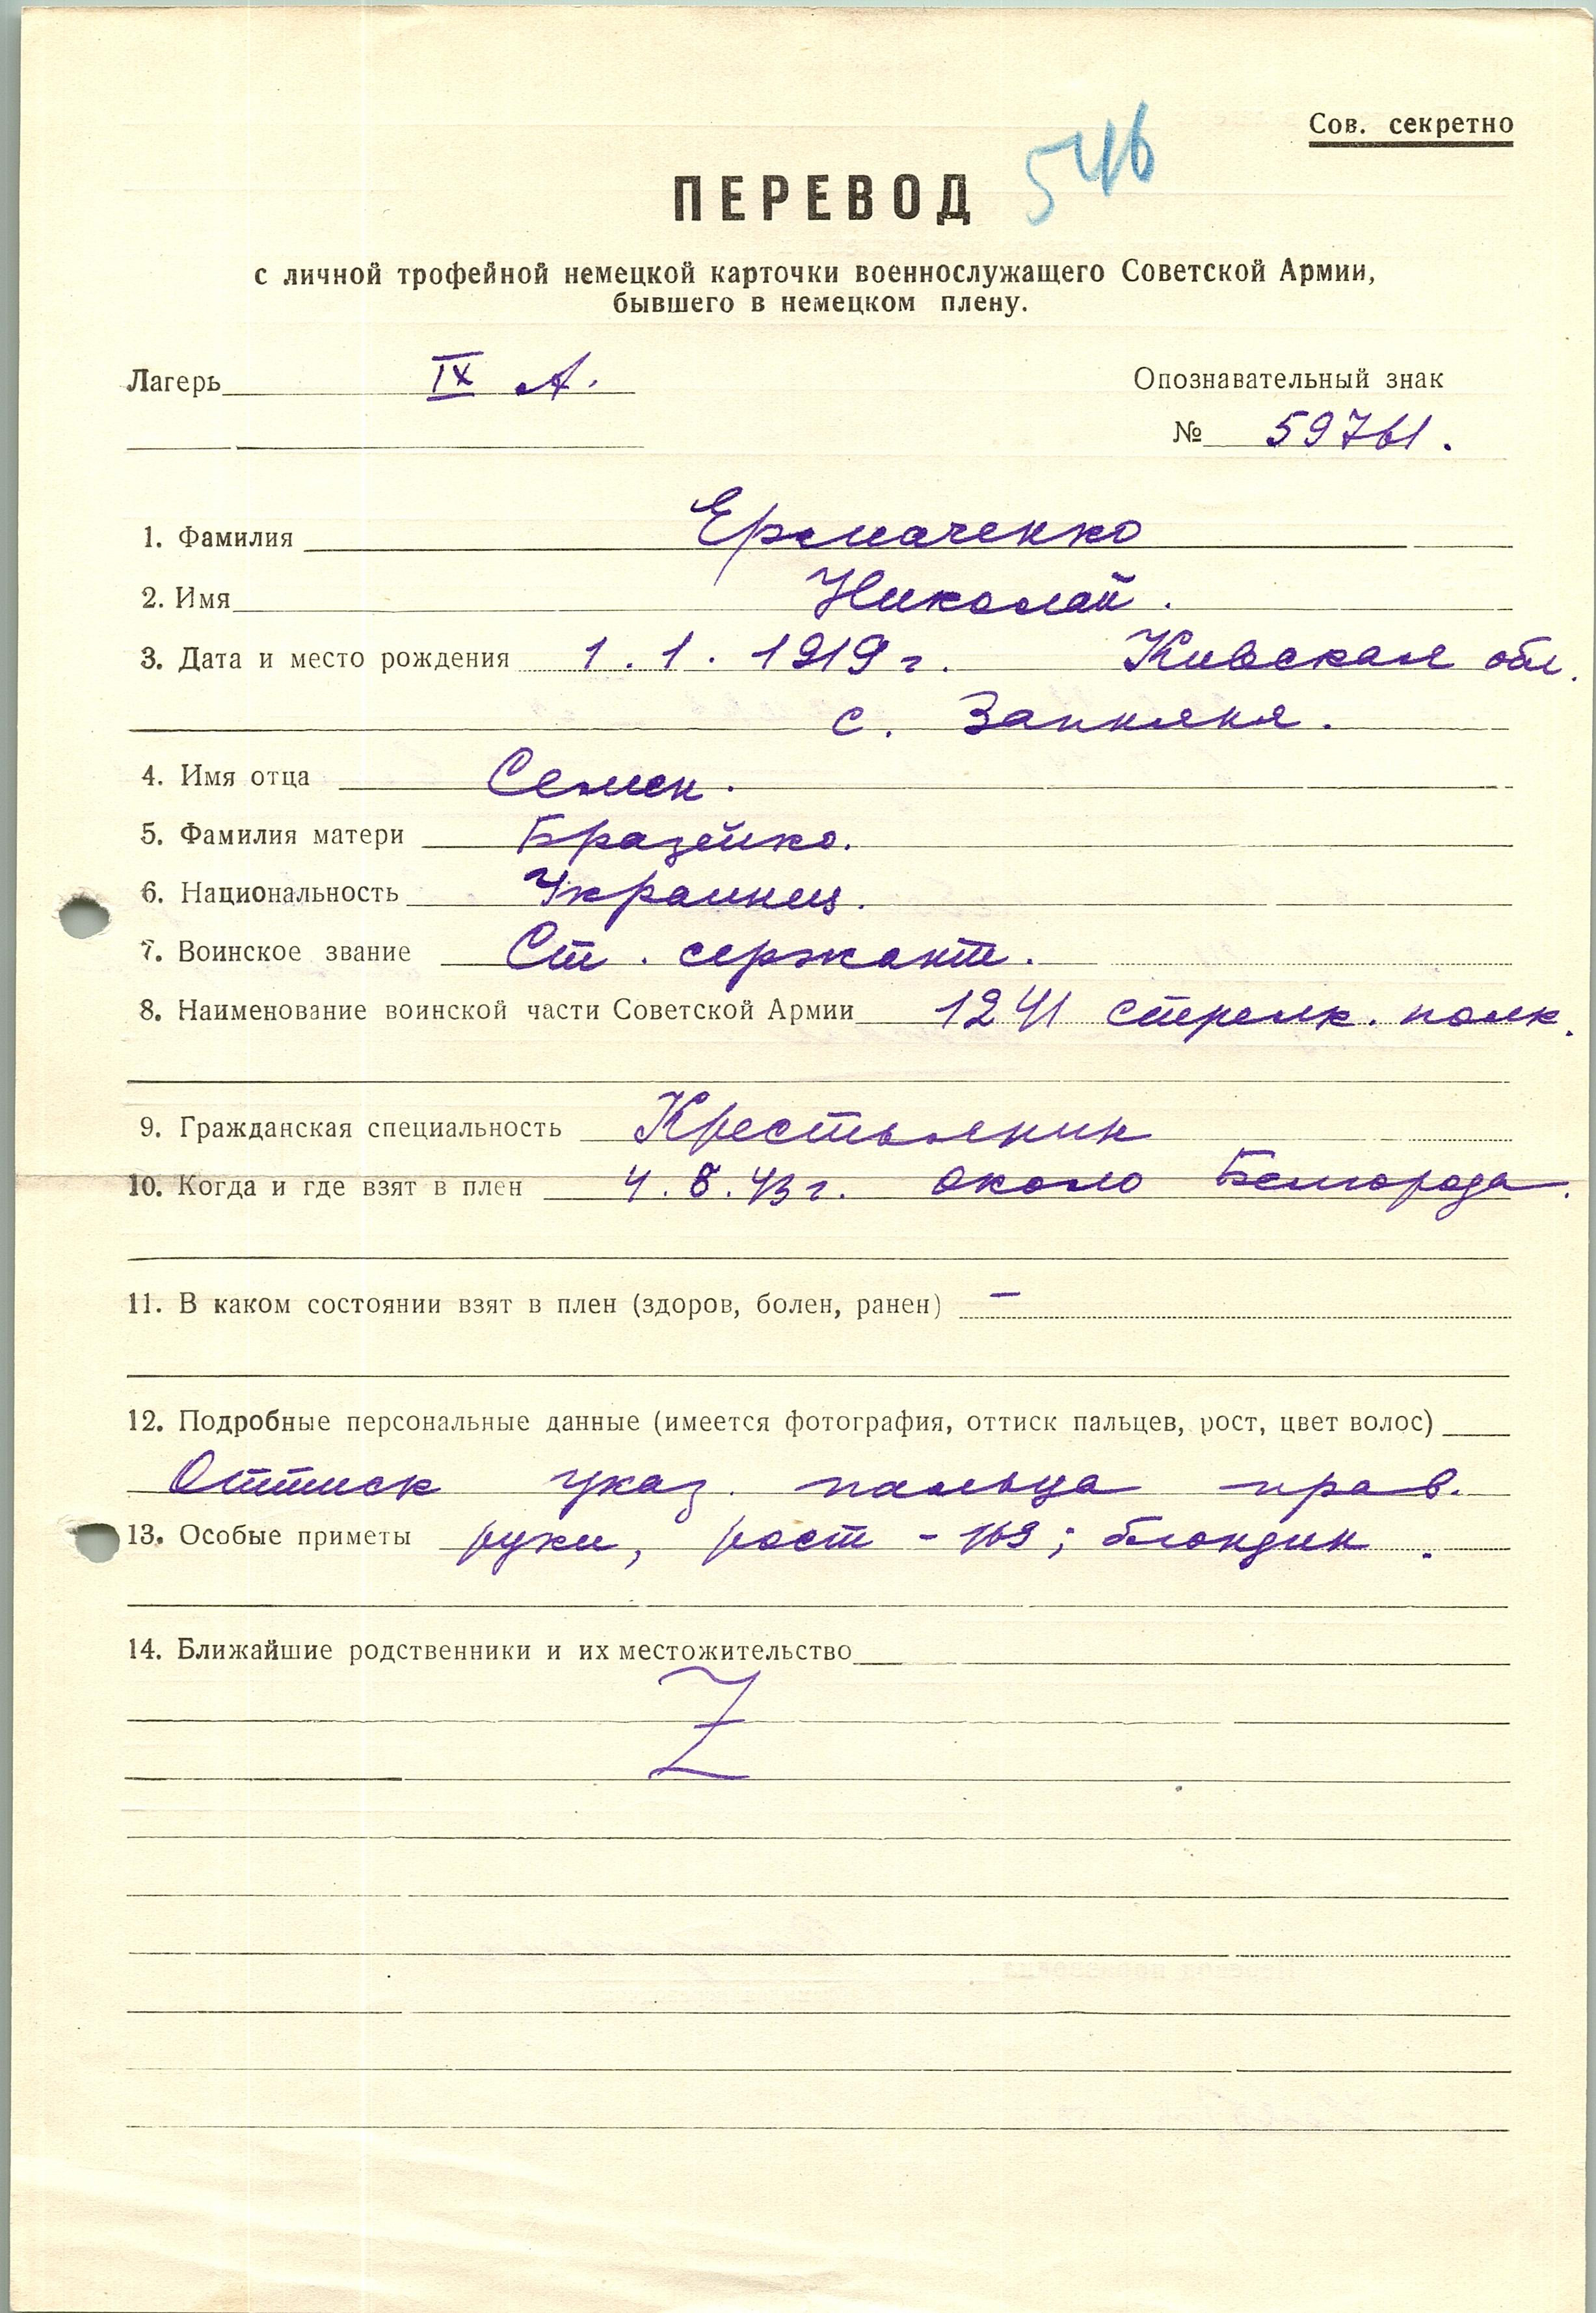 Сов. секретно
546
ПЕРЕВОД
с личной трофейной немецкой карточки военнослужащего Советской Армии,
бывшего в немецком плену.
Лагерь IX А. Опознавательный знак
№ 59761.
1. Фамилия Ермаченко
2. Имя Николай.
3. Дата и место рождения 1.1.1919 г. Кивская обл.
с. Запкяня.
4. Имя отца Семен.
5. Фамилия матери Бразейко.
6. Национальность Украинец.
7. Воинское звание Ст. сержант.
8. Наименование воинской части Советской Армии 1241 стрелк. полк.
9. Гражданская специальность Крестьянин
10. Когда и где взят в плен 4.8.43 г. около Белгорода.
11. В каком состоянии взят в плен (здоров, болен, ранен) –
12. Подробные персональные данные (имеется фотография, оттиск пальцев, рост, цвет волос)
Оттиск указ. пальца прав.
13. Особые приметы руки, рост - 169; блондин.
14. Ближайшие родственники и их местожительство
Z